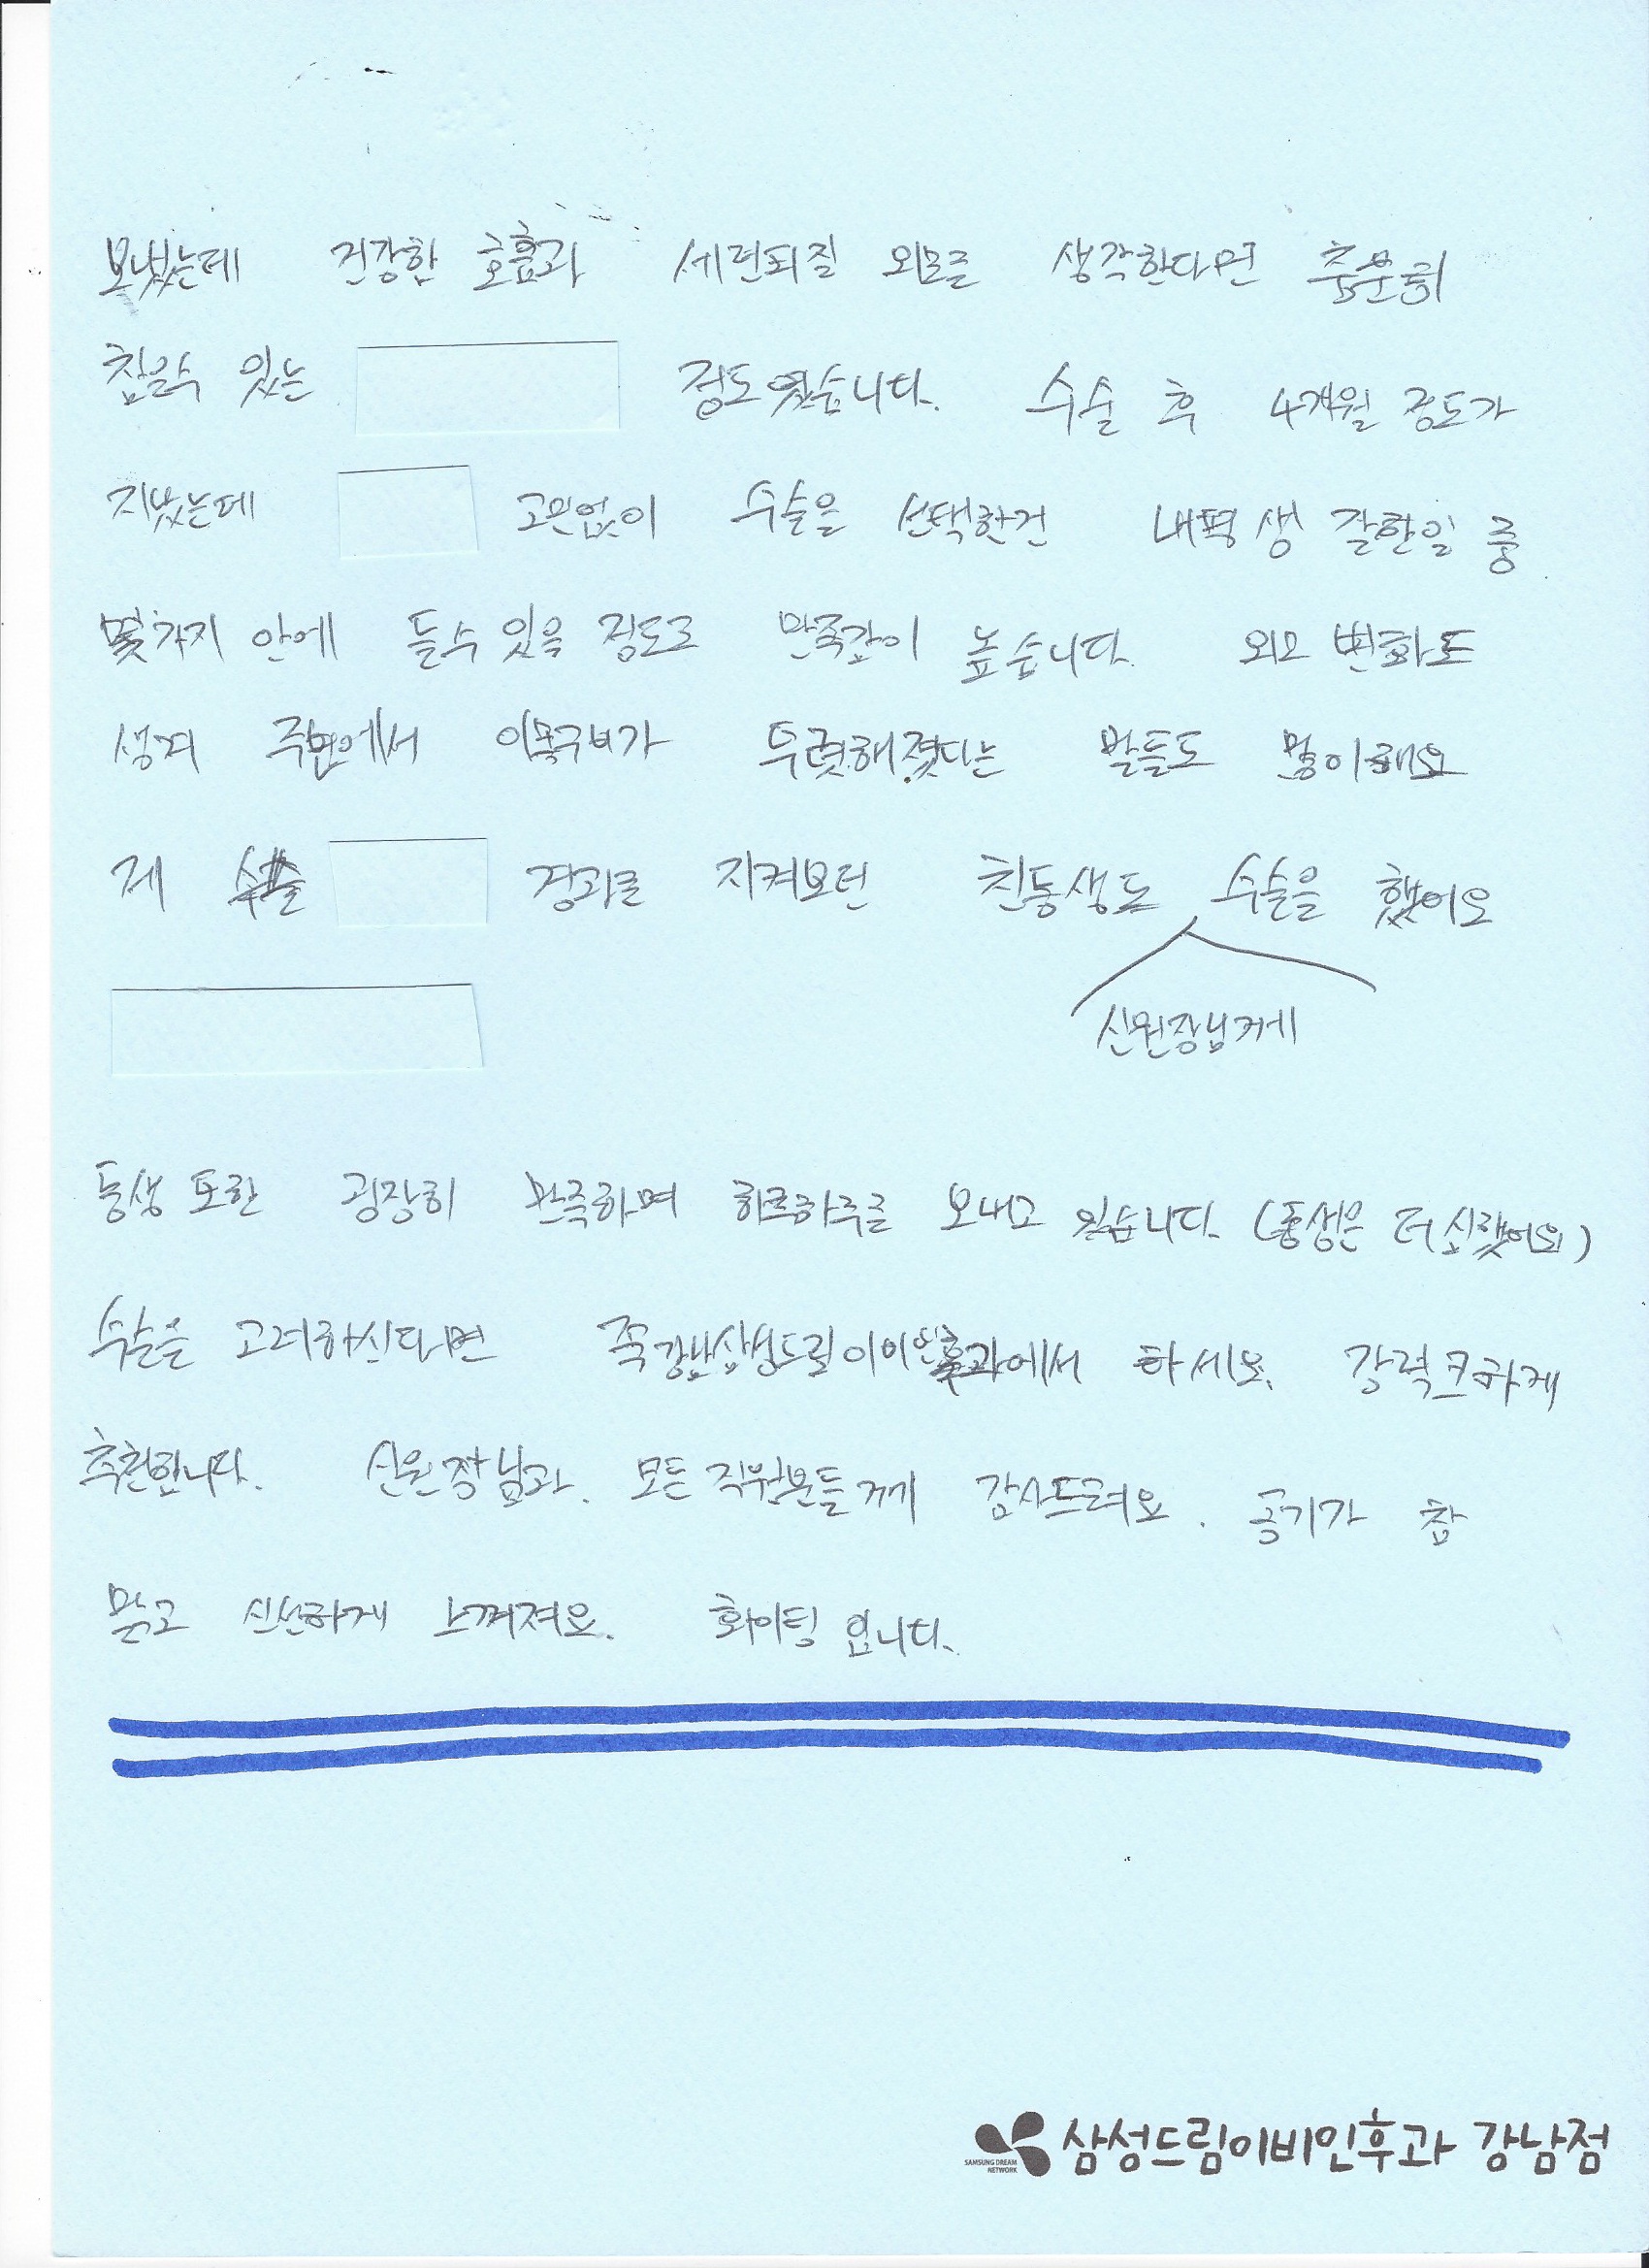 보냈는데 건강한 호흡과 세련되질 외모를 생각한다면 충분히
참을수 있는 정도였습니다. 수술 후 4개월 정도가
지났는데 고민없이 수술을 선택한건 내평생 잘한일 중
몇가지 안에 들수 있을 정도로 만족감이 높습니다. 외모 변화도
생겨 주변에서 이목구비가 뚜렷해졌다는 말들도 많이해요
제 경과를 지켜보던 친동생도 수술을 했어요
신원장님께
동생 또한 굉장히 만족하며 하루하루를 보내고 있습니다. (동생은 더 심했어요)
수술을 고려하신다면 꼭 강남삼성드림이비인후과에서 하세요. 강력크하게
추천합니다. 신원장님과. 모든 직원분들께 감사드려요. 공기가 참
맑고 신선하게 느껴져요. 화이팅 입니다.
SAMSUNG DREAM
NETWORK
삼성드림이비인후과 강남점